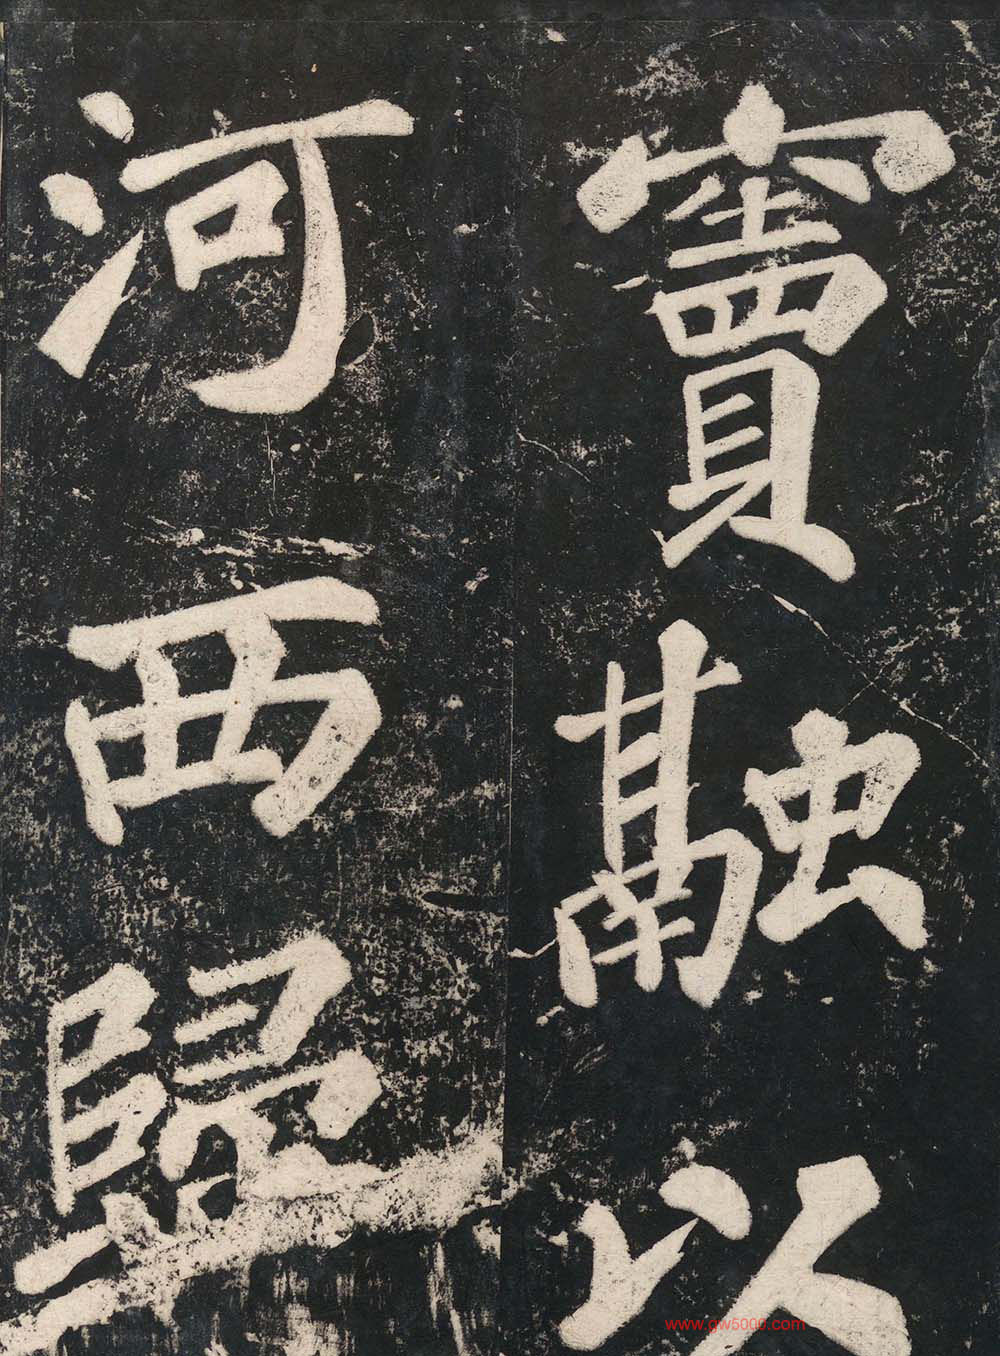 竇融以
河西歸
www.gw5000.com